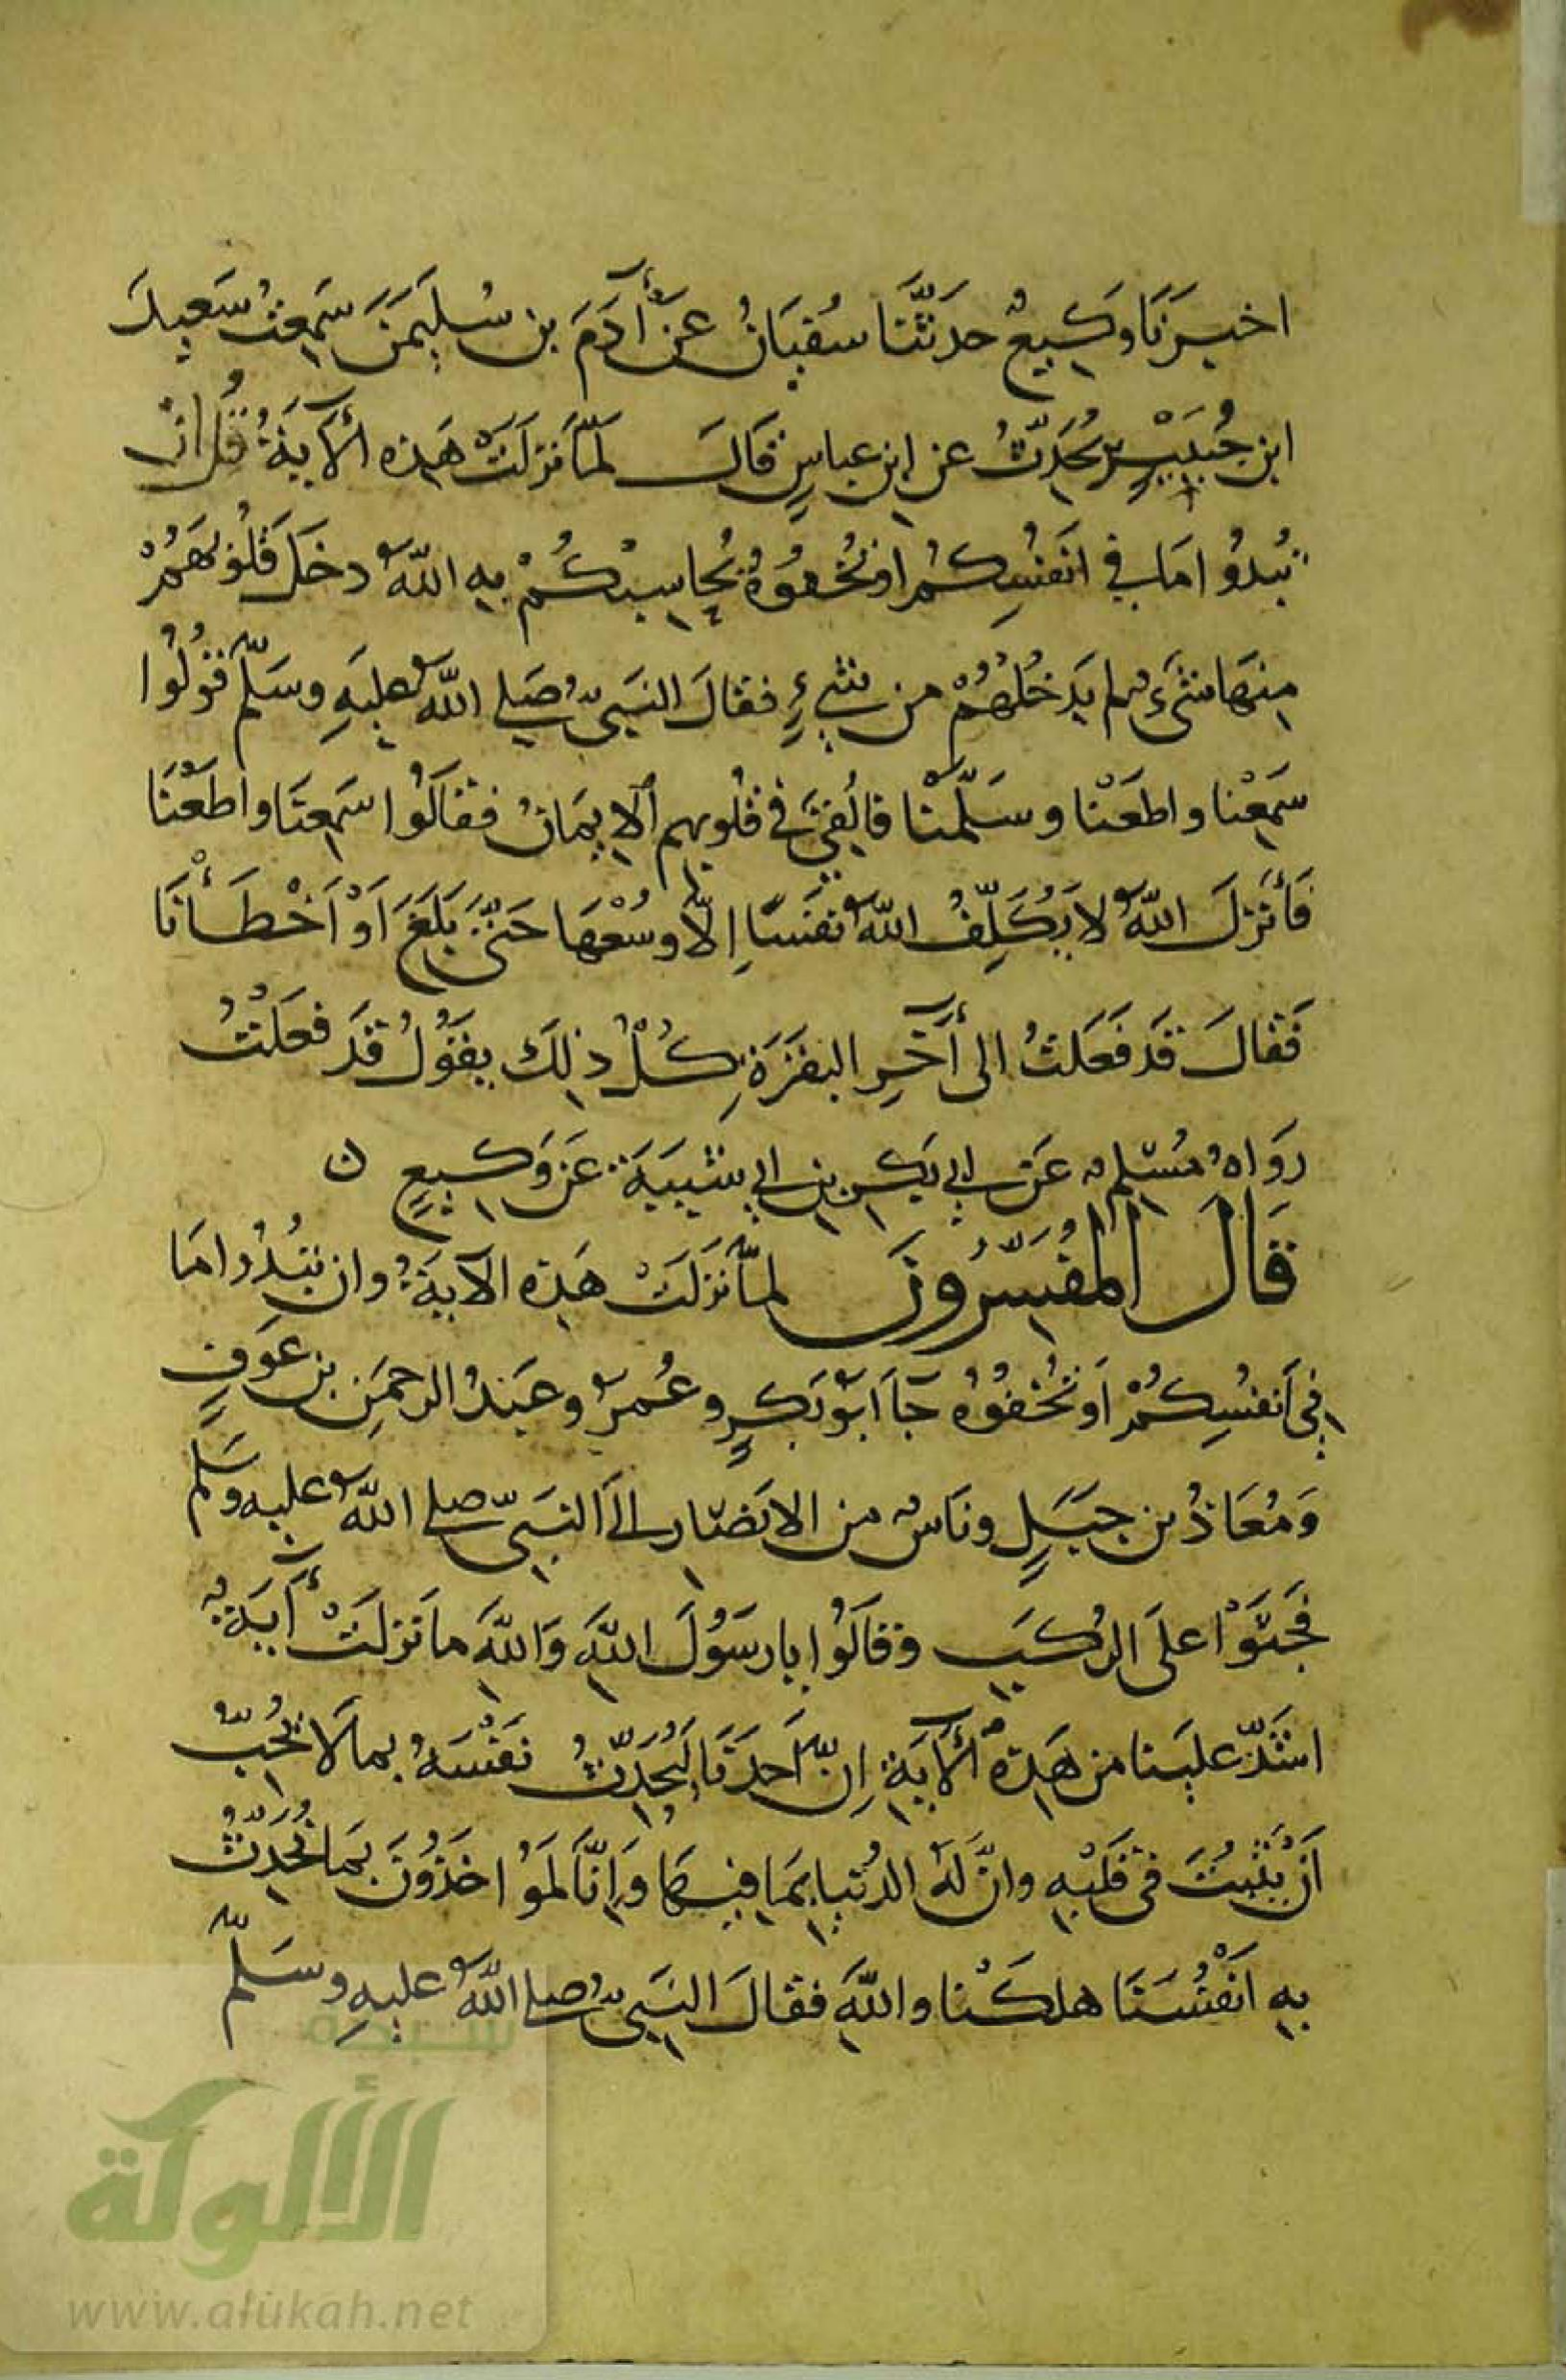 اخبرَنَا وَكيعٌ حدثَّنَا سُفيَانُ عَنْ آدَمَ بن سُلَيمَنَ سَمِعتُ سَعيدَ
ابن جُبَيْرٍ يُحَدِّثُ عن ابن عباسٍ قَالَ لَمَّا نزلَتْ هَذه الآيَةُ قُل ان
تُبدُوا مَا في انفُسِكُم اوتُخفُوهُ يُحاسِبْكُمْ بِهِ اللهُ دخَلَ قلُوبَهُمْ
مِنهَا شَىءٌ لم يَدخُلهُمْ من شىءٍ فقالَ النَبيُّ صَلى اللهُ عليَهِ وسَلَّم قوُلُوا
سَمِعْنا واطعَنْا وسَلَّمْنا فالُقِىَ في قلُوبِهِم الايمَانُ فقالَوُا سَمِعنَا واطَعْنَا
فَأنزلَ اللهُ لا يُكَلِّفُ اللهُ نَفسًا إِلاَّ وسُعْهَا حَتَّى بَلَغَ اَوْ اَخْطَأْنَا
فَقالَ قَد فَعَلتُ الى آخِرِ البقرَةِ كُلُّ ذلِكَ يقوُلُ قَد فعَلتُ
روَاهُ مُسْلِمٌ عَن ابي بَكرِ بن ابي شيبَةَ عَن وَكيعٍ ن
قَالَ المفُسِّرُونَ لمَّا نزَلَتْ هَذِه الآيَةُ وان تبُدُوا مَا
فِي اَنفُسِكُمْ اَو تُخفُوهُ جَآ ابَوُ بَكرٍ وعُمرُ وعَبدُ الرحمَنِ بن عَوفٍ
وَمُعَاذُ بن جَبَلٍ ونَاسٌ من الانصَارِ الَى النبَىِّ صلى اللهُ عليه وسَلَّم
فَجثَوْا على الرُكَبِ وقالَوُا يا رسَوُلَ اللهِ وَاللهِ ما نزلَتْ آيَةٌ
اشَدّ علَينا من هَذِهِ الآيَةِ اِنَّ اَحدَنَا لَيُحَدِّثُ نَفْسَهُ بما لَا يُحِبُّ
اَنْ يَثبُتَ في قَلبِهِ وانَّ لَهُ الدُنيا بِمَا فيهَا وَاِنَّا لَمَوُاخَذُونَ بمَا نُحَدِّثُ
بِهِ اَنْفُسَنَا هلكَنْا واللهِ فقالَ النَبيُّ صلى اللهُ عليهِ وسَلَّم
شبكة
الألوكة
www.alukah.net